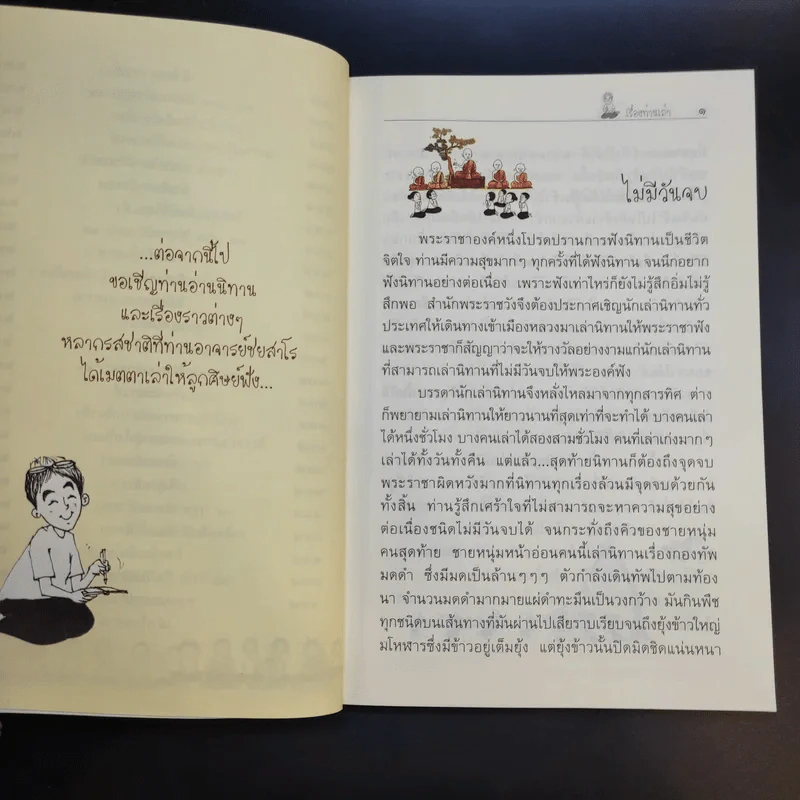 ...ต่อจากนี้ไป
ขอเชิญท่านอ่านนิทาน
และเรื่องราวต่างๆ
หลากรสชาติที่ท่านอาจารย์ชยสาโร
ได้เมตตาเล่าให้ลูกศิษย์ฟัง...
เรื่องท่านเล่า ๑
ไม่มีวันจบ
พระราชาองค์หนึ่งโปรดปรานการฟังนิทานเป็นชีวิต
จิตใจ ท่านมีความสุขมากๆ ทุกครั้งที่ได้ฟังนิทาน จนนึกอยาก
ฟังนิทานอย่างต่อเนื่อง เพราะฟังเท่าไหร่ก็ยังไม่รู้สึกอิ่มไม่รู้
สึกพอ สำนักพระราชวังจึงต้องประกาศเชิญนักเล่านิทานทั่ว
ประเทศให้เดินทางเข้าเมืองหลวงมาเล่านิทานให้พระราชาฟัง
และพระราชาก็สัญญาว่าจะให้รางวัลอย่างงามแก่นักเล่านิทาน
ที่สามารถเล่านิทานที่ไม่มีวันจบให้พระองค์ฟัง
บรรดานักเล่านิทานจึงหลั่งไหลมาจากทุกสารทิศ ต่าง
ก็พยายามเล่านิทานให้ยาวนานที่สุดเท่าที่จะทำได้ บางคนเล่า
ได้หนึ่งชั่วโมง บางคนเล่าได้สองสามชั่วโมง คนที่เล่าเก่งมากๆ
เล่าได้ทั้งวันทั้งคืน แต่แล้ว...สุดท้ายนิทานก็ต้องถึงจุดจบ
พระราชาผิดหวังมากที่นิทานทุกเรื่องล้วนมีจุดจบด้วยกัน
ทั้งสิ้น ท่านรู้สึกเศร้าใจที่ไม่สามารถจะหาความสุขอย่าง
ต่อเนื่องชนิดไม่มีวันจบได้ จนกระทั่งถึงคิวของชายหนุ่ม
คนสุดท้าย ชายหนุ่มหน้าอ่อนคนนี้เล่านิทานเรื่องกองทัพ
มดดำ ซึ่งมีมดเป็นล้านๆๆๆ ตัวกำลังเดินทัพไปตามท้อง
นา จำนวนมดดำมากมายแผ่ดำทะมึนเป็นวงกว้าง มันกินพืช
ทุกชนิดบนเส้นทางที่มันผ่านไปเสียราบเรียบจนถึงยุ้งข้าวใหญ่
มโหฬารซึ่งมีข้าวอยู่เต็มยุ้ง แต่ยุ้งข้าวนั้นปิดมิดชิดแน่นหนา